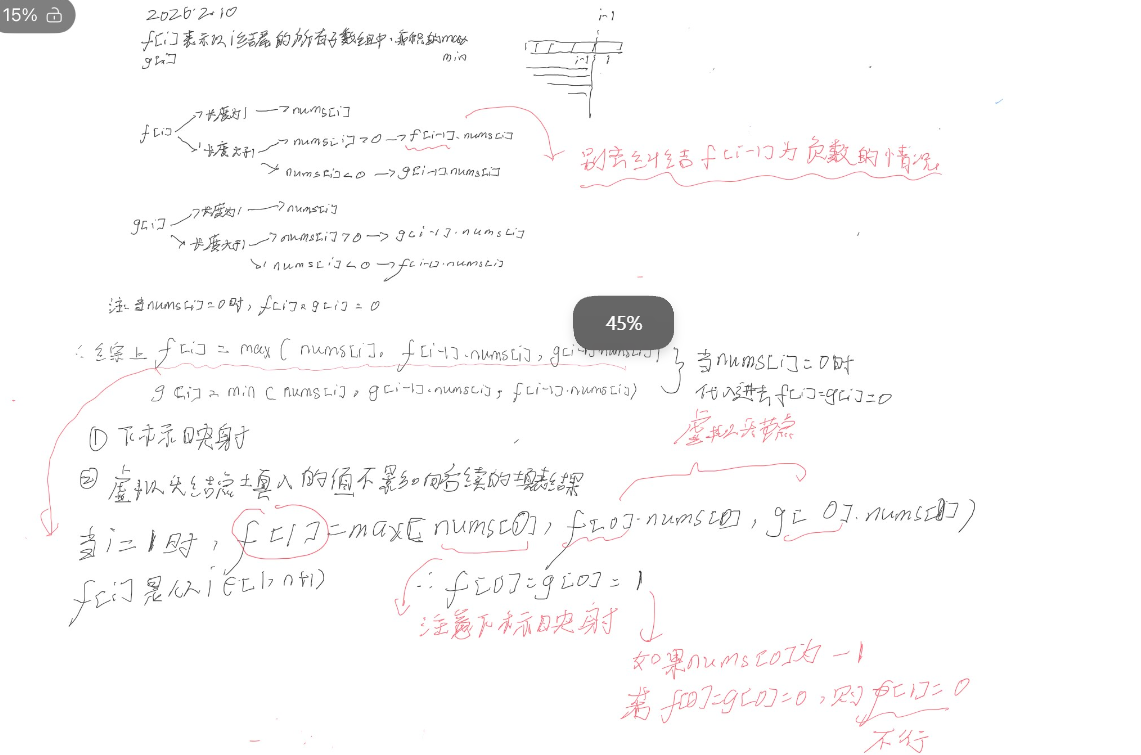 15%
2026.2.10
i-1
f[i]表示以i结尾的所有子数组中,乘积的max
g[i] min
i-1 i
f[i] → 长度为1 → nums[i]
→ 长度大于1 → nums[i]>0 → f[i-1]·nums[i]
→ nums[i]<0 → g[i-1]·nums[i]
别去纠结f[i-1]为负数的情况。
g[i] → 长度为1 → nums[i]
→ 长度大于1 → nums[i]>0 → g[i-1]·nums[i]
→ nums[i]<0 → f[i-1]·nums[i]
注:当nums[i]=0时,f[i]=g[i]=0
45%
∴综上 f[i]=max(nums[i], f[i-1]·nums[i], g[i-1]·nums[i])
g[i]=min(nums[i], g[i-1]·nums[i], f[i-1]·nums[i])
} 当nums[i]=0时
代入进去f[i]=g[i]=0
虚拟头节点
① 下标映射
② 虚拟头结点填入的值不影响后续的填表结果
当i=1时, f[1]=max(nums[0], f[0]·nums[0], g[0]·nums[0])
f[i]是从i∈[1,n+1)
∴ f[0]=g[0]=1
注意下标映射
如果nums[0]为-1
若f[0]=g[0]=0,则f[1]=0
不行